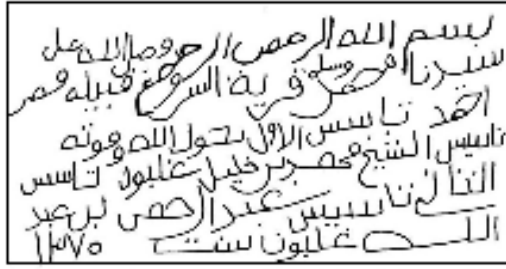 بسم الله الرحمن الرحيم وصل الله على
سيدنا محمد وسلم قرية قبيله
احمد تاسس الاول بحول الله وقوته
تاسيس الشيخ محمد بن خليل غلبون و تاسس
الثاني تاسيس عبد الرحمن بن عبد
الله غلبون سنة ١٣٧٠